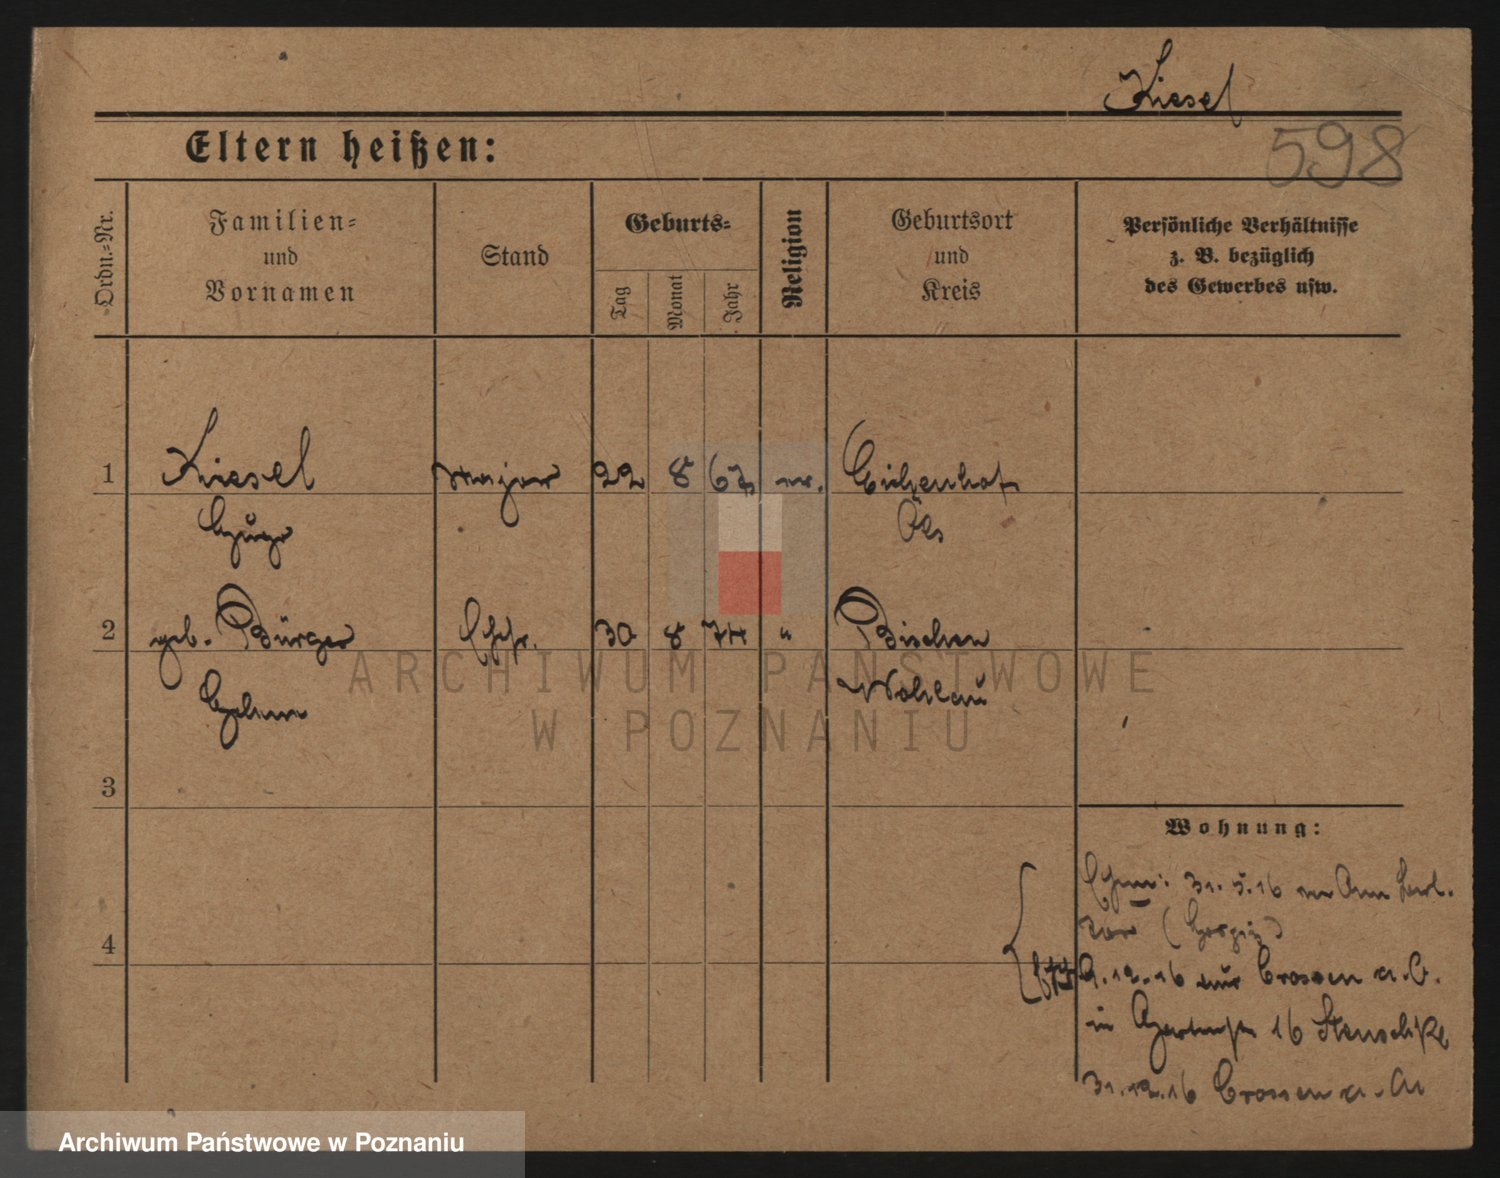 Kiesel
598
Eltern heißen:
Ordn.-Nr.
Familien-
und
Vornamen
Stand
Geburts-
Tag
Monat
Jahr
Religion
Geburtsort
und
Kreis
Persönliche Verhältnisse
z. B. bezüglich
des Gewerbes usw.
1 Kiesel Major 22 8 67 ev. Eichenhof
Hugo Öls
2 geb. Bürger Ehefr. 30 8 74 " Bischen
Wohlau
3
Wohnung:
31.5.16
4
9.12.16 Crossen a. O.
in 16
31.12.16 Crossen a.
ARCHIWUM PAŃSTWOWE
W POZNANIU
Archiwum Państwowe w Poznaniu